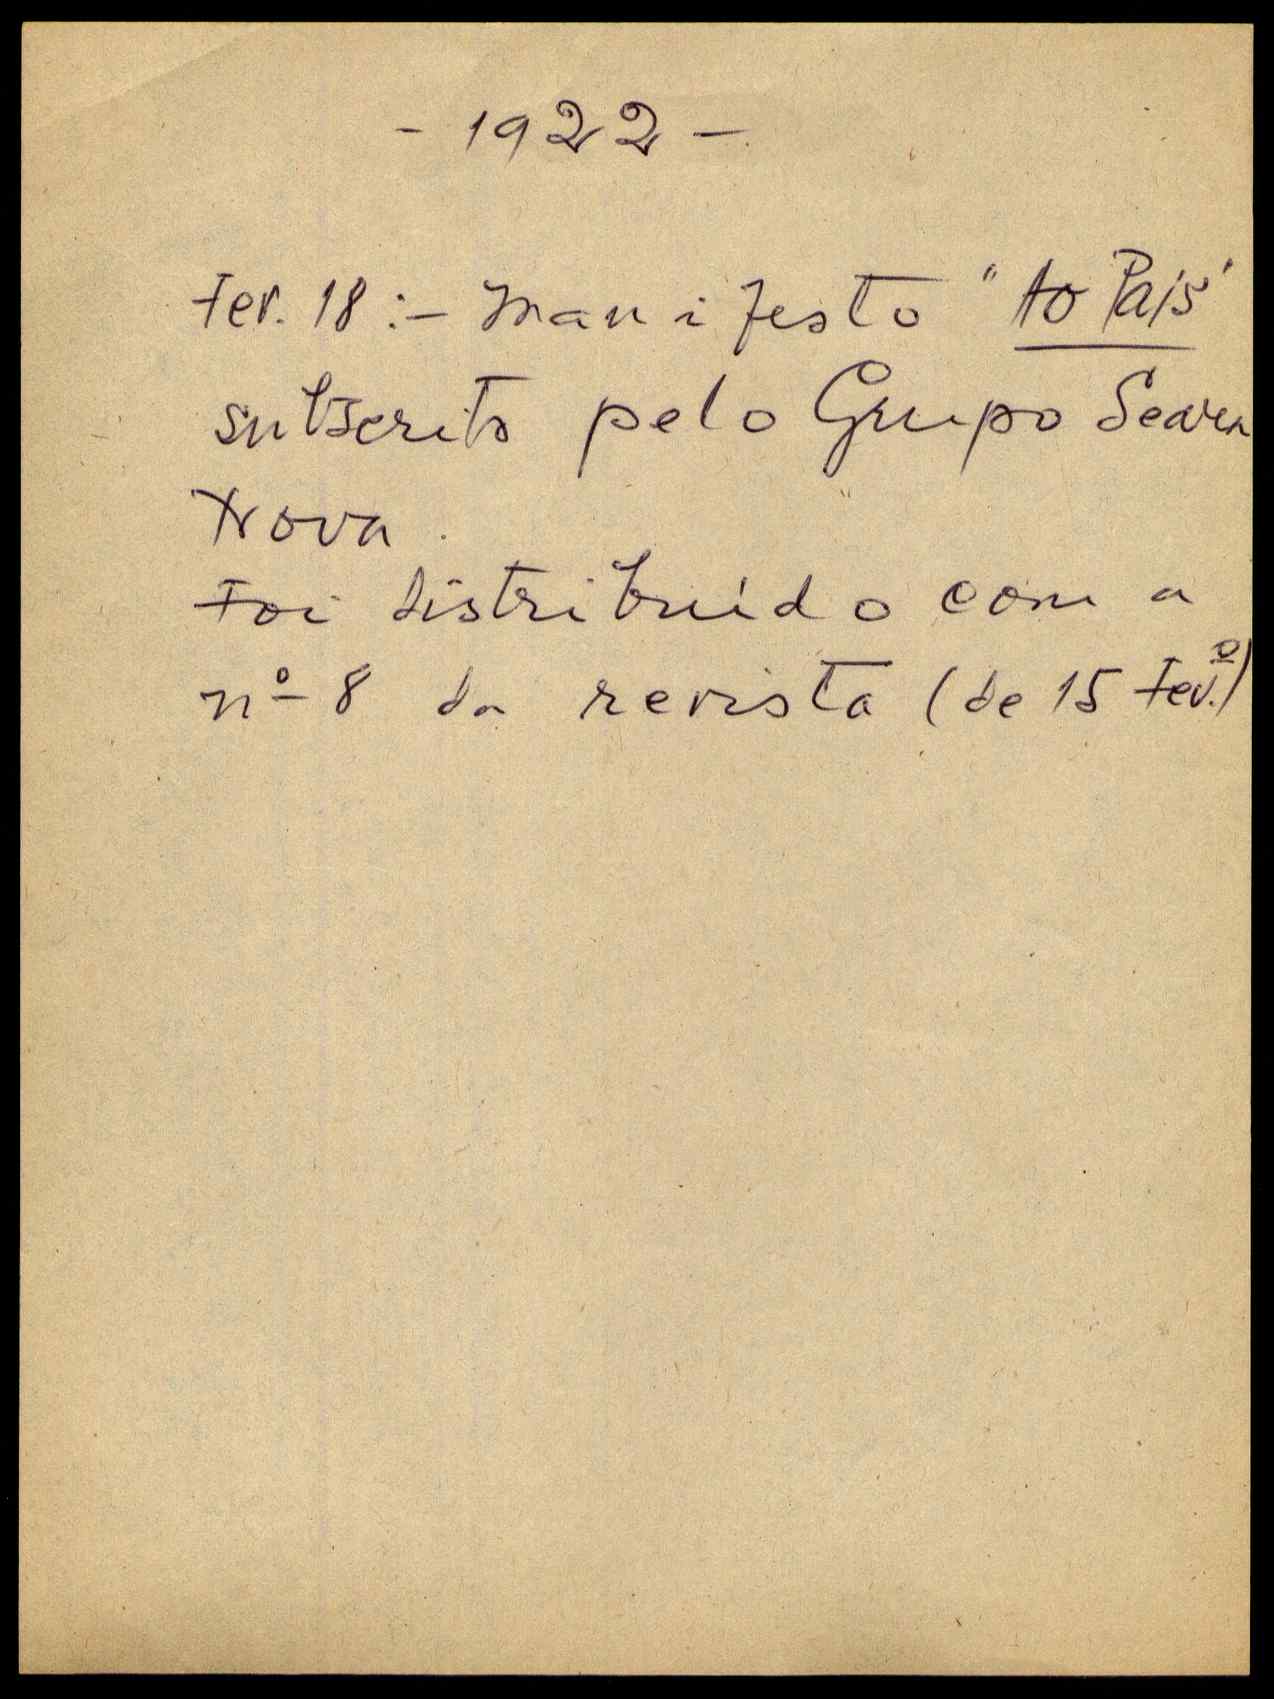 - 1922 -
Fev. 18 :- Manifesto "Ao País"
subscrito pelo Grupo Seara
Nova.
Foi distribuído com a
nº 8 da revista (de 15 Fev.º)